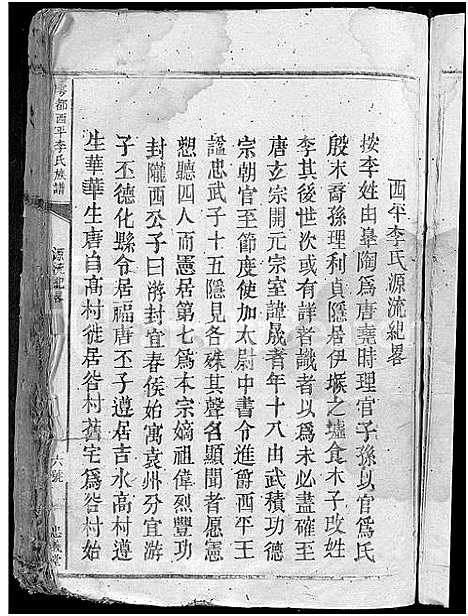 西平李氏源流紀畧
按李姓由皋陶為唐堯時理官子孫以官為氏
殷末裔孫理利貞隱居伊墟之墟食木子改姓
李其後世次或有詳者識者以為未必盡確至
唐玄宗開元宗室諱晟者年十八由武積功德
宗朝官至節度使加太尉中書令進爵西平王
諡忠武子十五隱見各殊其聲名顯聞者愿憲
愬聽四人而憲居第七為本宗嫡祖偉烈豐功
封隴西公子曰游封宜春侯始寓袁州分宜游
子丕德化縣令居福唐丕子遵居吉水高村遵
生華華生唐自高村徙居谷村舊宅為谷村始
雩都西平李氏族譜
源流紀畧
六號
忠義堂